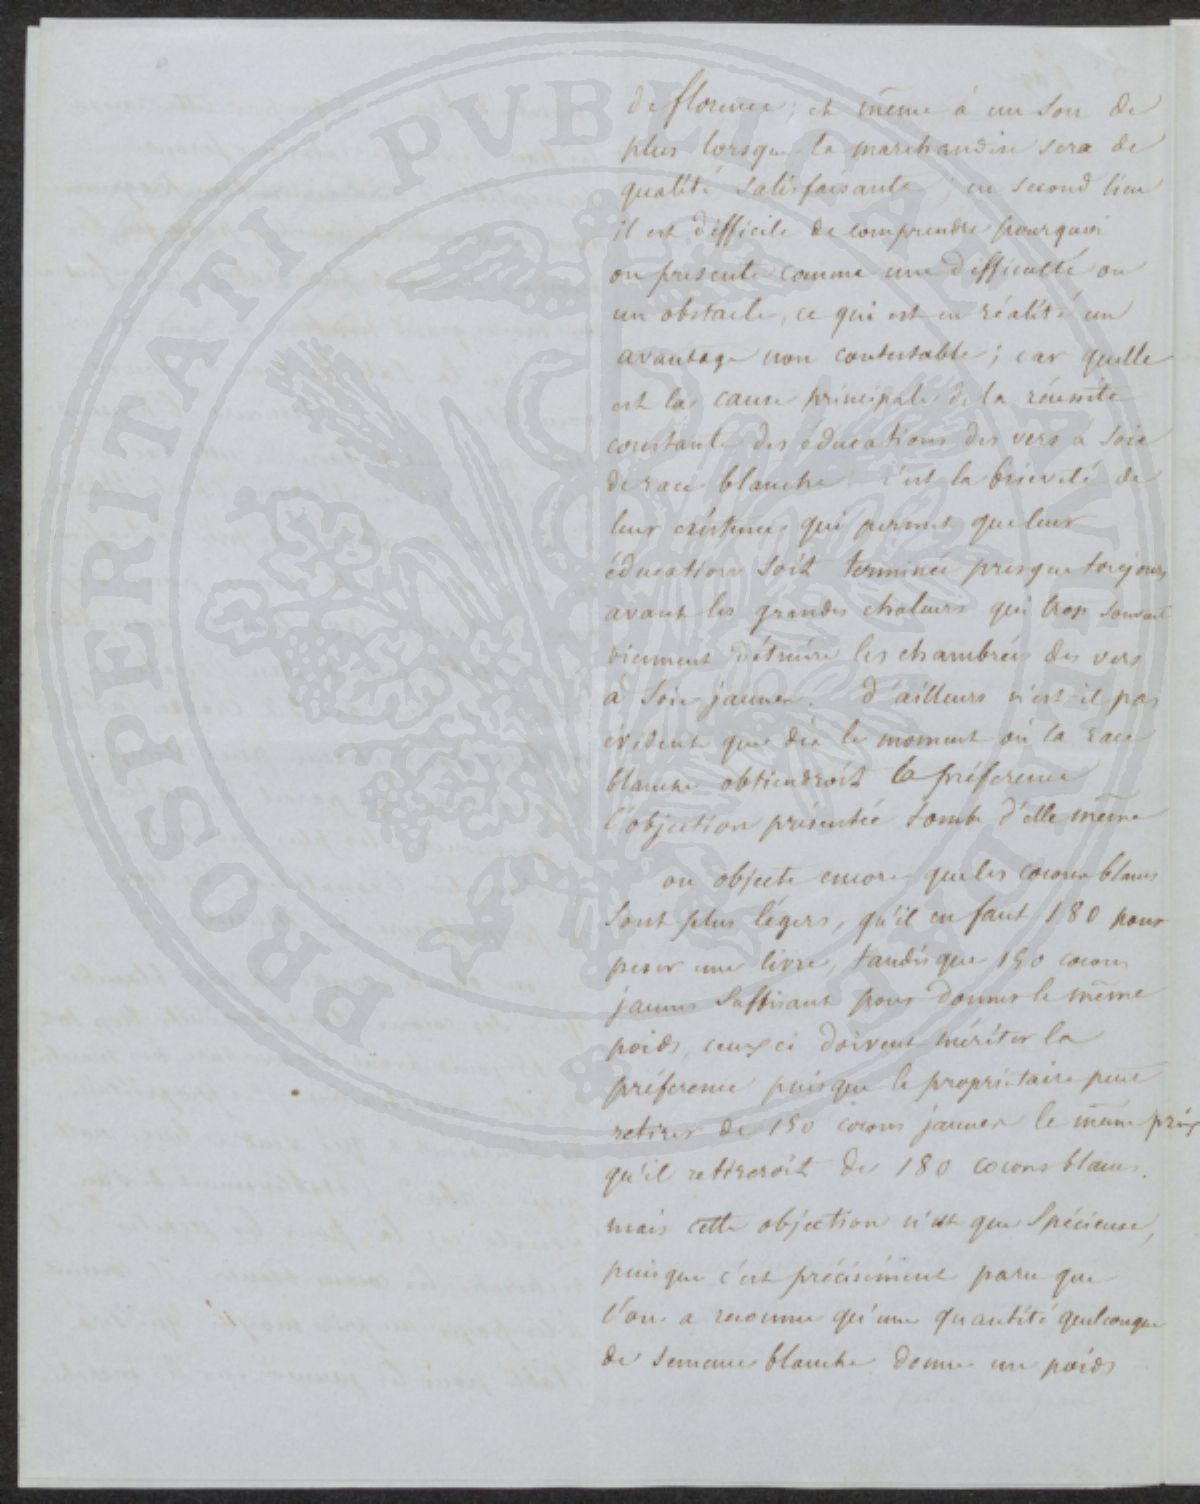 de florence, et même à un sou de
plus lorsque la marchandise sera de
qualité satisfaisante, en second lieu
il est difficile de comprendre pourquoi
on presente comme une difficulté ou
un obstacle, ce qui est en réalité un
avantage non contestable; car quelle
est la cause principale de la réussite
constante des éducations des vers à soie
de race blanche c'est la brieveté de
leur existence qui permet que leur
éducation soit terminée presque toujours
avant les grandes chaleurs qui trop souvent
viennent détruire les chambrées des vers
à soie jaunes. D'ailleurs n'est-il pas
évident que dès le moment où la race
blanche obtiendroit la préference
l'objection présentée tombe d'elle même
on objecte encore que les cocons blancs
sont plus légers, qu'il en faut 180 pour
peser une livre, tandis que 150 cocons
jaunes suffisant pour donner le même
poids, ceux ci doivent mériter la
préference puisque le propriétaire peut
retirer de 150 cocons jaunes le même prix
qu'il retireroit de 180 cocons blancs.
mais cette objection n'est que spécieuse,
puisque c'est précisément parce que
l'on a reconnu qu'une quantité quelconque
de semence blanche donne un poids
PROSPERITATI PUBLICAE